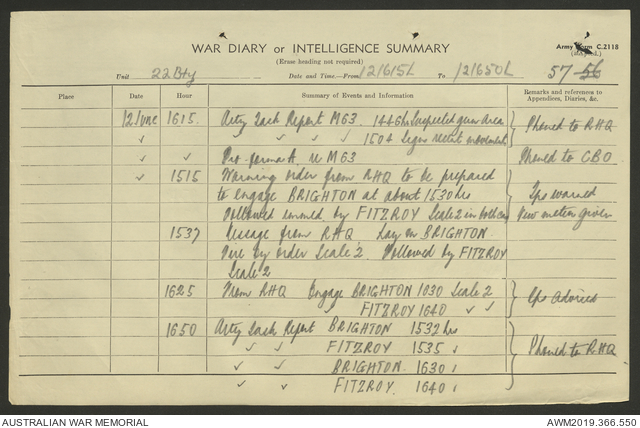 WAR DIARY or INTELLIGENCE SUMMARY
(Erase heading not required)
Army Form C.2118
Unit 22 Bty Date and Time—From 121615L To 121650L 57 56
Place Date Hour Summary of Events and Information Remarks and references to Appendices, Diaries, &c.
12 June 1615. Arty Tack Report M63. 1446 hrs Suspected gun area
✓ ✓ ✓ ✓ 1504 Signs metal movement
Phoned to RHQ
✓ ✓ Pro-forma A. M63 Phoned to CBO
✓ 1515 Warning order from RHQ to be prepared
to engage BRIGHTON at about 1530 hrs
Followed by FITZROY Scale 2 in both cases
Tps warned
New meteor given
1537 Message from RHQ Lay on BRIGHTON.
Fire by order Scale 2. Followed by FITZROY
Scale 2
1625 From RHQ Engage BRIGHTON 1030 Scale 2
FITZROY 1640 ✓ ✓
Tps advised
1650 Arty Tack Report BRIGHTON 1532 hrs
✓ ✓ FITZROY 1535 ✓
✓ ✓ BRIGHTON 1630 ✓
✓ ✓ FITZROY. 1640 ✓
Phoned to RHQ
AUSTRALIAN WAR MEMORIAL AWM2019.366.550